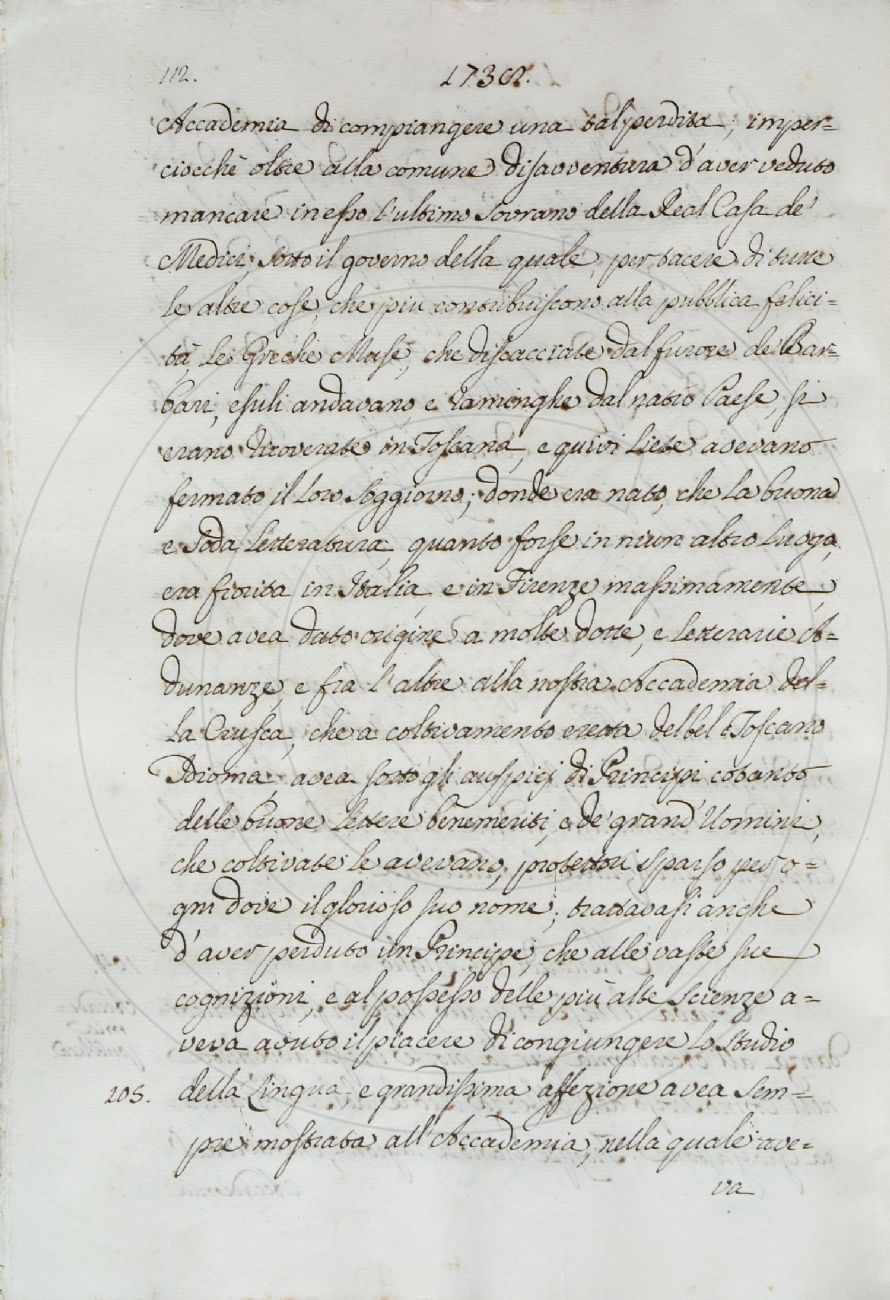 112.
1738.
Accademia di compiangere una tal perdita; imper=
ciocchè oltre alla comune disavventura d'aver veduto
mancare in esso l'ultimo Sovrano della Real Casa de'
Medici, sotto il governo della quale, per tacere di tutte
le altre cose, che più contribuiscono alla pubblica felici=
tà, le Greche Muse, che discacciate dal furore de Bar=
bari, esuli andavano, e raminghe dal natio Paese, si
erano ricoverate in Toscana, e quivi liete avevano
fermato il loro soggiorno; donde era nato, che la buona
e soda letteratura, quanto forse in niun altro luogo,
era fiorita in Italia, e in Firenze massimamente,
dove avea dato origine a molte dotte, e letterarie A=
dunanze, e fra l'altre alla nostra Accademia del=
la Crusca, che a coltivamento eretta del bel Toscano
Idioma, avea sotto gli auspicj di Principi cotanto
delle buone lettere benemeriti, e de' grand'Uomini,
che coltivate le avevano, protettori sparso per o=
gni dove il glorioso suo nome; trattavasi anche
d'aver perduto un Principe, che alle vaste sue
cognizioni, e al possesso delle più alte scienze a=
veva avuto il piacere di congiungere lo studio
105. della Lingua, e grandissima affezione avea sem=
pre mostrata all'Accademia, nella quale ave=
va